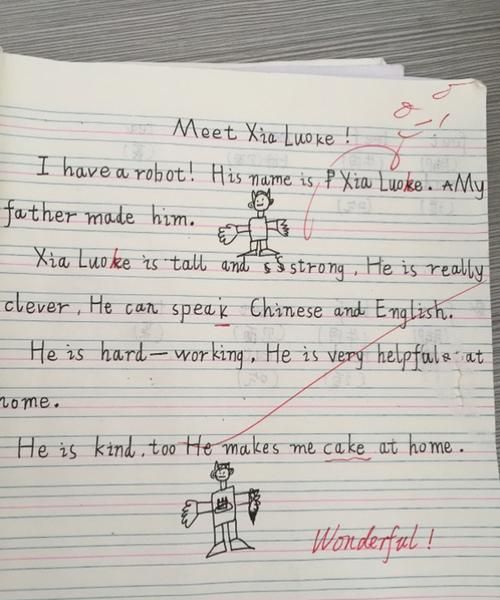 Meet Xia Luoke !
I have a robot! His name is Xia Luoke. My
father made him.
Xia Luoke is tall and strong. He is really
clever. He can speak Chinese and English.
He is hard-working. He is very helpful at
home.
He is kind, too He makes me cake at home.
Wonderful!